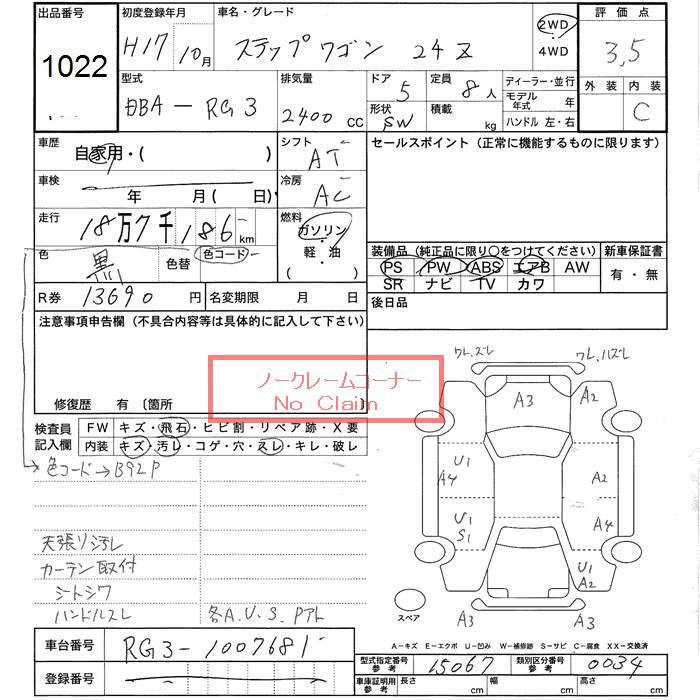 出品番号 初度登録年月 車名・グレード 評価点
1022 H17 10月 ステップワゴン 24Z 2WD ・ 4WD 3,5
型式 排気量 ドア 定員 ディーラー・並行 外装 内装
DBA-RG3 2400 CC 5 8人 モデル年式 年 C
形状 SW 積載 kg ハンドル 左・右
車歴 自家用・( ) シフト AT セールスポイント (正常に機能するものに限ります)
車検 年 月 ( 日) 冷房 AC
走行 18万7千186km 燃料 ガソリン・軽・油
色 黒 色替 色コード
装備品 (純正品に限り○をつけてください) 新車保証書
PS PW ABS エアB AW 有・無
SR ナビ TV カワ
R券 13690円 名変期限 月 日 後日品
注意事項申告欄 (不具合内容等は具体的に記入して下さい)
ノークレームコーナー
No Claim
修復歴 有 〔箇所 〕
検査員記入欄 FW キズ・飛石・ヒビ割・リペア跡・X要
内装 キズ・汚レ・コゲ・穴・スレ・キレ・破レ
色コード→B92P
天張り汚レ
カーテン取付
シートシワ
ハンドルスレ 各A.U.S.Pアト
ワレ.ズレ ワレ.ハズレ
A3 A2
U1 A4 A2
U1 S1 A4
U1 A2
スペア A3 A3
A−キズ E−エクボ U−凹み W−補修跡 S−サビ C−腐食 XX−交換済
車台番号 RG3-1007681
登録番号
型式指定番号 参考 15067 類別区分番号 参考 0034
車庫証明用 参考 長さ cm 幅 cm 高さ cm